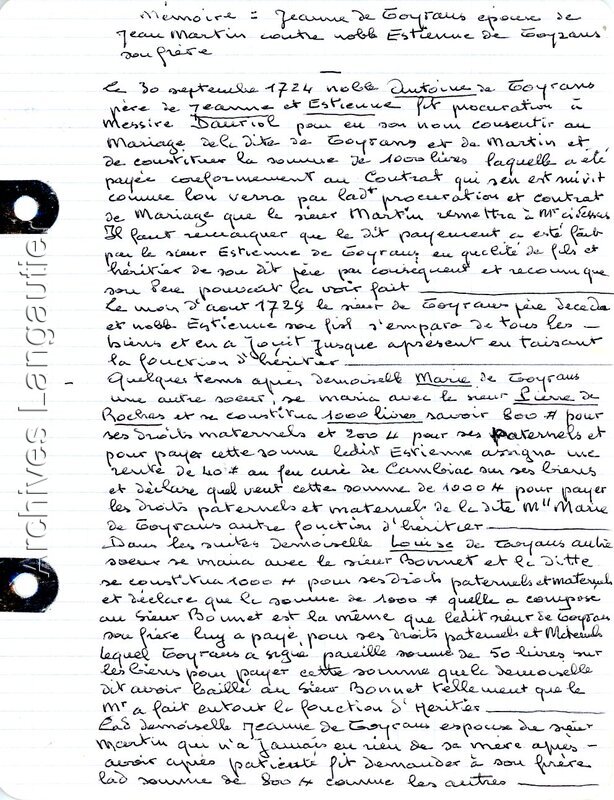 Mémoire = Jeanne de Goyrans épouse de
Jean Martin contre noble Estienne de Goyrans
son frère
Le 30 septembre 1724 noble Antoine de Goyrans
père de Jeanne et Estienne fit procuration à
Messire Dauriol pour en son nom consentir au
Mariage de la dite de Goyrans et de Martin et
de constituer la somme de 1000 livres laquelle a été
payée conformement au Contrat qui s'en est suivit
comme lon verra par lad procuration et contrat
de Mariage que le sieur Martin remettra à Mr
Il faut remarquer que le dit payement a esté fait
par le sieur Estienne de Goyrans en qualité de fils et
héritier de son dit père par consequent et reconu que
son Père pouvait l'avoir fait
Le mois d'aout 1729 le sieur de Goyrans père deceda
et noble Estienne son fisl s'empara de tous les
biens et en a Jouit Jusque apresent en faisant
la fonction d'héritier
Quelque tems après demoiselle Marie de Goyrans
une autre soeur, se maria avec le sieur Pierre de
Roches et se constitua 1000 livres savoir 800 # pour
ses droits maternels et 200 # pour ses paternels et
pour payer cette somme ledit Estienne assigna une
rente de 40 # au feu curé de Cambiac sur ses biens
et déclare quel veut cette somme de 1000 # pour payer
les droits paternels et maternels de la dite Mlle Marie
de Goyrans autre fonction d'héritier
Dans les suites demoiselle Louise de Goyrans autre
soeur se maria avec le sieur Bonnet et la ditte
se constitua 1000 # pour ses Droits paternels et maternels
et déclare que la somme de 1000 # quelle a compose
au Sieur Bonnet est la même que ledit sieur de Goyrans
son frère luy a payé pour ses droits paternels et Maternels
lequel Goyrans a signé pareille somme de 50 livres sur
les biens pour payer cette somme que la demoiselle
dit avoir baillé au Sieur Bonnet tellement que le
Mr a fait entout la fonction d'Heritier
Lad demoiselle Jeanne de Goyrans espouse du sieur
Martin qui n'a jamais eu rien de sa mere apres
avoir après patienté fit demander à son frère
lad somme de 800 # comme les autres
Archives Langautier